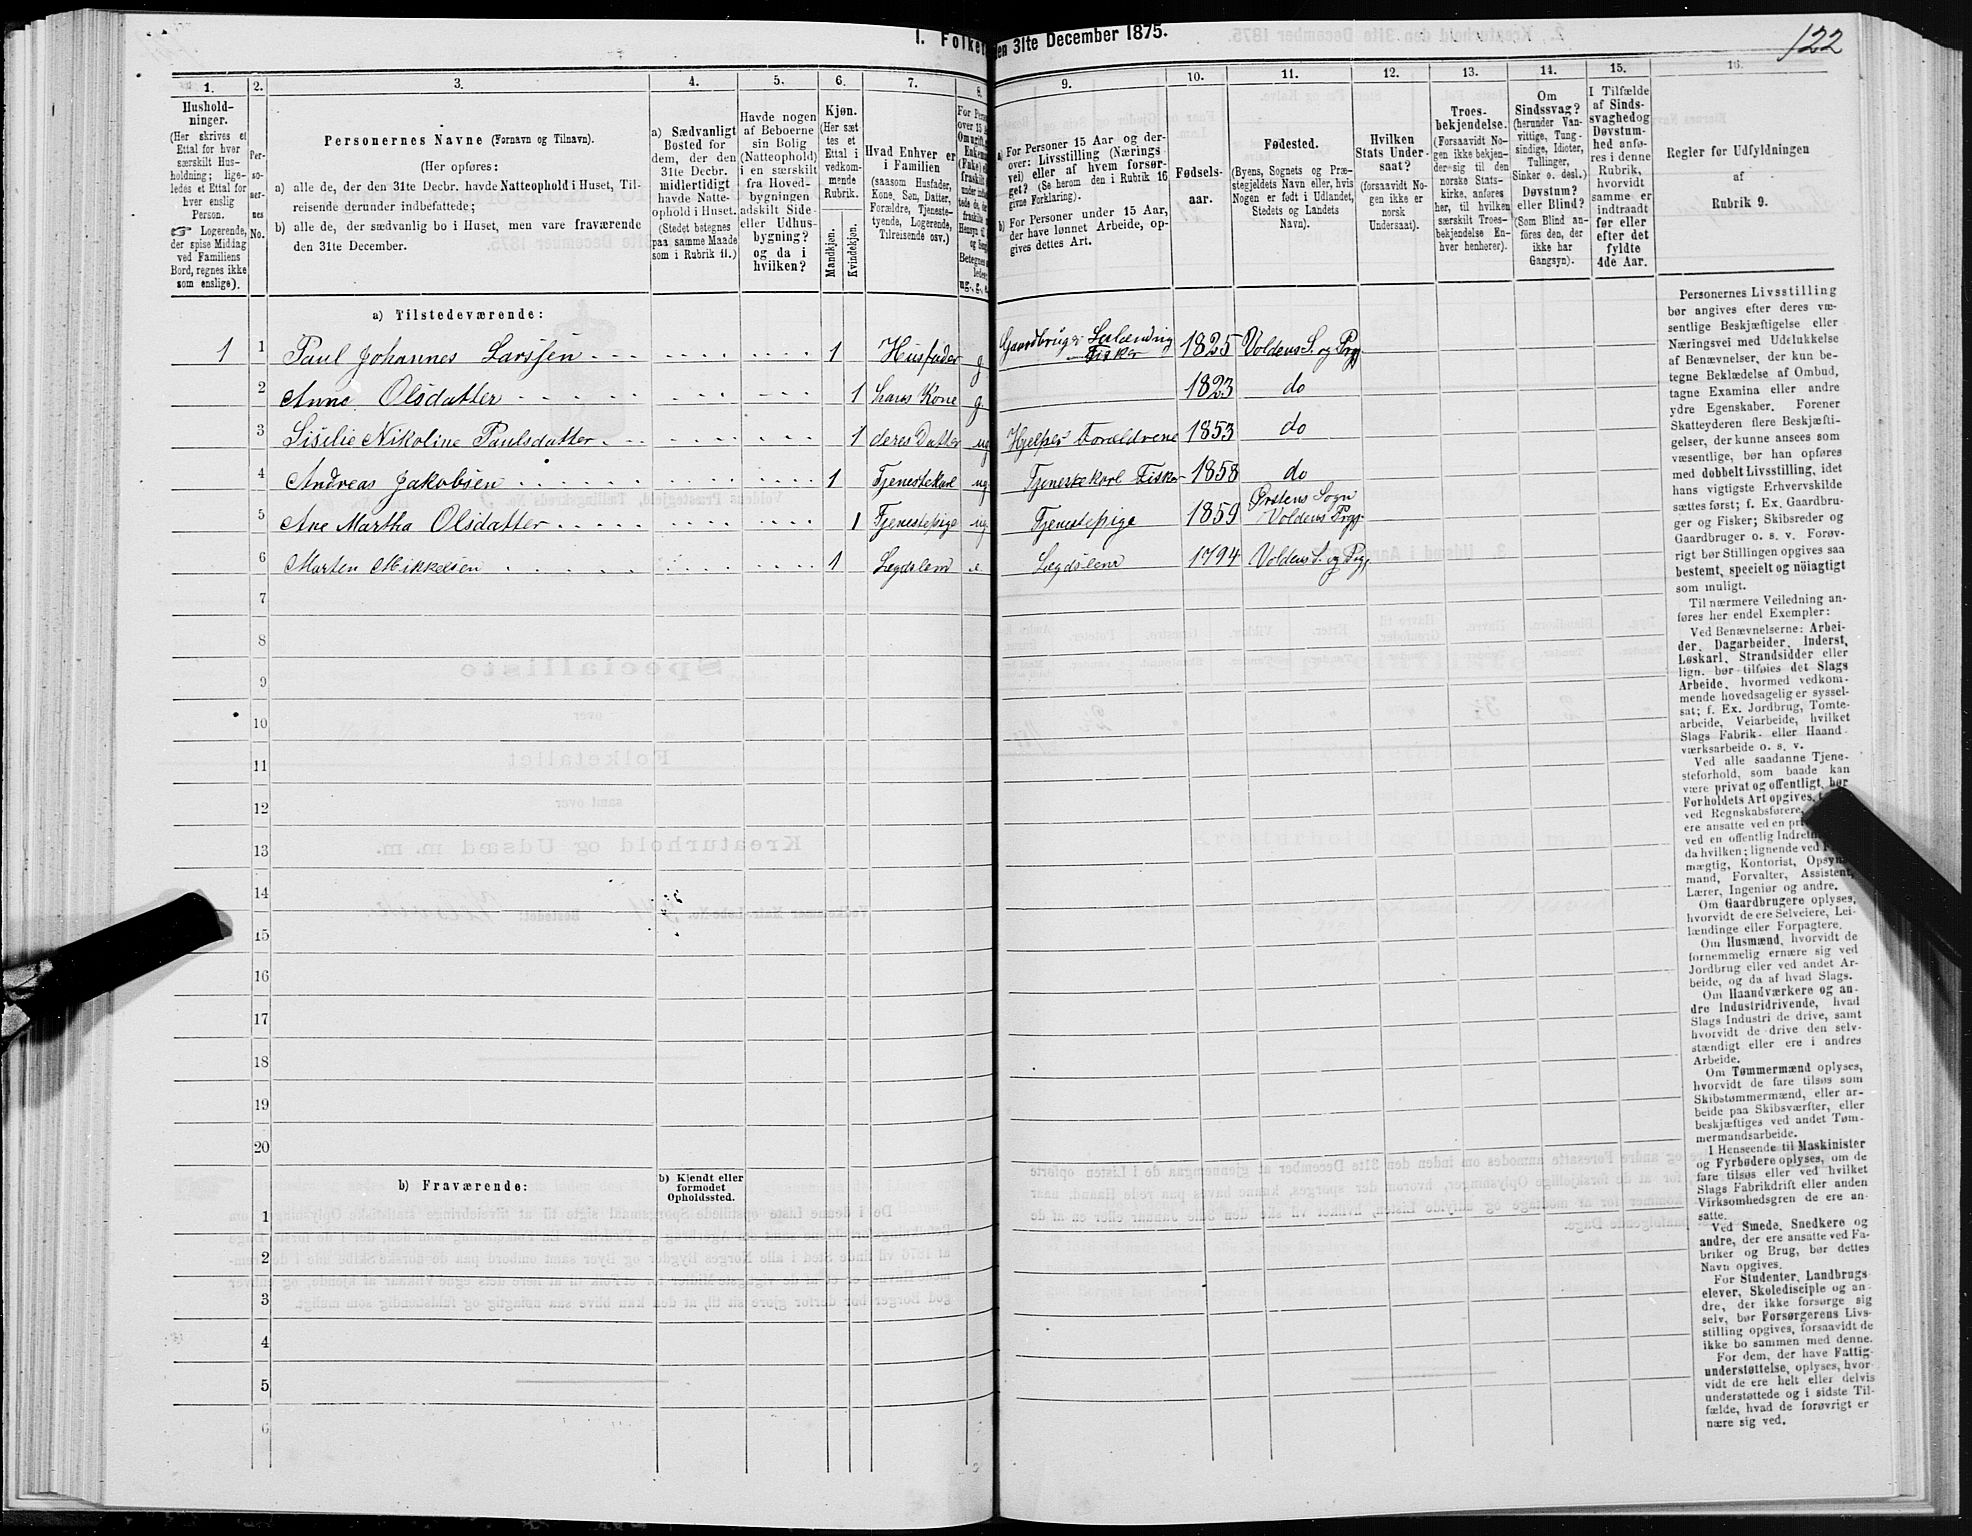 122
I. Folket
en 31te December 1875.
1.
Hushold-
ninger.
(Her skrives et
Ettal for hver
særskilt Hus-
holdning; lige-
ledes et Ettal for
hver enslig
Person.
Logerende,
der spise Middag
ved Familiens
Bord, regnes ikke
som enslige).
2.
Per-
so-
ner-
nes
No.
3.
Personernes Navne (Fornavn og Tilnavn).
(Her opføres:
a) alle de, der den 31te Decbr. havde Natteophold i Huset, Til-
reisende derunder indbefattede;
b) alle de, der sædvanlig bo i Huset, men vare fraværende
den 31te December.
4.
a) Sædvanligt
Bosted for
dem, der den
31te Decbr.
midlertidigt
havde Natte-
ophold i Huset.
(Stedet betegnes
paa samme Maade
som i Rubrik 11.)
5.
Havde nogen
af Beboerne
sin Bolig
(Natteophold)
i en særskilt
fra Hoved-
bygningen
adskilt Side-
eller Udhus-
bygning?
og da i
hvilken?
6.
Kjøn.
(Her sæt
et
Ettal i
vedkom-
mende
Rubrik.
Mandkjøn.
Kvindekjøn.
7.
Hvad Enhver er
i Familien
(saasom Husfader,
Kone, Søn, Datter,
Forældre, Tjeneste-
tyende, Logerende,
Tilreisende osv.)
8.
For Perso
over 15 A
9.
a) For Personer 15 Aar og der-
over: Livsstilling (Nærings-
vei) eller af hvem forsør-
get? (Se herom den i Rubrik 16
givne Forklaring).
b) For Personer under 15 Aar,
der have lønnet Arbeide, op-
gives dettes Art.
10.
Fødsels-
aar.
11.
Fødested.
(Byens, Sognets og Præ-
stegjeldets Navn eller, hvis
Nogen er født i Udlandet,
Stedets og Landets
Navn).
12.
Hvilken
Stats Under-
saat?
(forsaavidt No-
gen ikke er
norsk
Undersaat).
13.
Troes-
bekjendelse.
(Forsaavidt No-
gen ikke bekjen-
der sig til den
norske Stats-
kirke, anføres
her, til hvilken
særskilt Troes-
bekjendelse En-
hver henhører).
14.
Om
Sindssvag?
(herunder Van-
vittige, Tung-
sindige, Idioter,
Tullinger,
Sinker o. desl.)
Døvstum?
eller Blind?
(Som Blind an-
føres den, der
ikke har
Gangsyn).
15.
I Tilfælde
af Sinds-
svaghed og
Døvstum-
hed anfø-
res i denne
Rubrik,
hvorvidt
samme er
indtraadt
før eller
efter det
fyldte
4de Aar.
16.
Regler for Udfyldningen
af
Rubrik 9.
a) Tilstedeværende:
1 1 Paul Johannes Larssen 1 Husfader g Gaardbruger Selveiendrig Fisker 1825 Voldens S. og Prgj
2 Anne Olsdatter 1 hans Kone g. 1823 do
3 Siselie Nikoline Paulsdatter 1 deres Datter ug Hjelper Foraldrene 1853 do
4 Andreas Jakobsen 1 Tjenestekarl ug Tjenestekarl Fisker 1858 do
5 Ane Martha Olsdatter 1 Tjenestepige ug Tjenestepige 1859 Ørstens Sogn Voldens Prgj.
6 Marten Mikkelsen 1 Legdslem e. Legdslem 1794 Voldens S. og Prgj
7
8
9
10
11
12
13
14
15
16
17
18
19
20
b) Fraværende:
b) Kjendt eller
formodet
Opholdssted.
1
2
3
4
5
6
Personernes Livsstilling
bør angives efter deres væ-
sentlige Beskjæftigelse eller
Næringsvei med Udelukkelse
af Benævnelser, der kun be-
tegne Beklædelse af Ombud,
tagne Examina eller andre
ydre Egenskaber. Forener
Skatteyderen flere Beskjæfti-
gelser, der kunne ansees som
væsentlige, bør han opføres
med dobbelt Livsstilling, idet
hans vigtigste Erhvervskilde
sættes først; f. Ex. Gaardbru-
ger og Fisker; Skibsreder og
Gaardbruger o. s. v. Forøv-
rigt bør Stillingen opgives saa
bestemt, specielt og nöiagtigt
som muligt.
Til nærmere Veiledning an-
føres her endel Exempler:
Ved Benævnelserne: Arbei-
der, Dagarbeider, Inderst,
Løskarl, Strandsidder eller
lign. bør tilføies det Slags
Arbeide, hvormed vedkom-
mende hovedsagelig er syssel-
sat; f. Ex. Jordbrug, Tomte-
arbeide, Veiarbeide, hvilket
Slags Fabrik- eller Haand-
værksarbeide o. s. v.
Ved alle saadanne Tjene-
steforhold, som baade kan
være privat og offentligt, bør
Forholdets Art opgives,
ved Regnskabsførere,
ere ansatte ved en pri
ved en offentlig Indretn
da hvilken; lignende ved F
mægtig, Kontorist, Opsyns-
mand, Forvalter, Assistent,
Lærer, Ingeniør og andre.
Om Gaardbrugere oplyses,
hvorvidt de ere Selveiere, Lei-
lændinge eller Forpagtere.
Om Husmænd, hvorvidt de
fornemmelig ernære sig ved
Jordbrug eller ved andet Ar-
beide, og da af hvad Slags.
Om Haandværkere og an-
dre Industridrivende, hvad
Slags Industri de drive, samt
hvorvidt de drive den selv-
stændigt eller ere i andres
Arbeide.
Om Tømmermænd oplyses,
hvorvidt de fare tilsøs som
Skibstømmermænd, eller ar-
beide paa Skibsværfter, eller
beskjæftiges ved andet Tøm-
mermandsarbeide.
I Henseende til Maskinister
og Fyrbødere oplyses, om de
fare tilsøs eller ved hvilket
Slags Fabrikdrift eller anden
Virksomhedsgren de ere an-
satte.
Ved Smede, Snedkere og
andre, der ere ansatte ved Fa-
briker og Brug, bør dettes
Navn opgives.
For Studenter, Landbrugs-
elever, Skoledisciple og an-
dre, der ikke forsørge sig
selv, bør Forsørgerens Livs-
stilling opgives, forsaavidt de
ikke bo sammen med denne.
For dem, der have Fattig-
understøttelse, oplyses, hvor-
vidt de ere helt eller delvis
understøttede og i sidste Til-
fælde, hvad de forøvrigt er
nære sig ved.